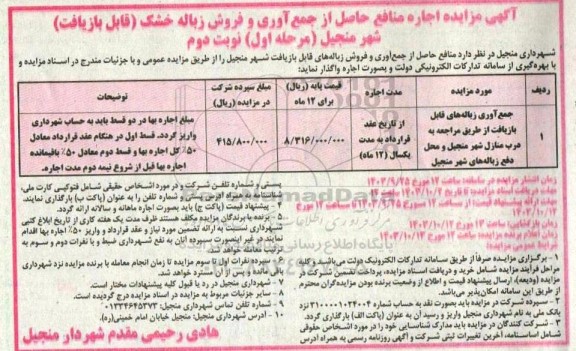 آگهی مزایده اجاره منافع حاصل از جمع‌آوری و فروش زباله خشک (قابل بازیافت)
شهر منجیل (مرحله اول) نوبت دوم
شهرداری منجیل در نظر دارد منافع حاصل از جمع‌آوری و فروش زباله‌های قابل بازیافت شهر منجیل را از طریق مزایده عمومی و با جزئیات مندرج در اسناد مزایده و
با بهره‌گیری از سامانه تدارکات الکترونیکی دولت و بصورت اجاره واگذار نماید:
ردیف
مورد مزایده
مدت اجاره
قیمت پایه (ریال) برای ۱۲ ماه
مبلغ سپرده شرکت در مزایده (ریال)
توضیحات
۱
جمع‌آوری زباله‌های قابل
بازیافت از طریق مراجعه به
درب منازل شهر منجیل و محل
دفع زباله‌های شهر منجیل
از تاریخ عقد
قرارداد به مدت
یکسال (۱۲ ماه)
۸/۳۱۶/۰۰۰/۰۰۰
۴۱۵/۸۰۰/۰۰۰
مبلغ اجاره بها در دو قسط باید به حساب شهرداری
واریز گردد. قسط اول در هنگام عقد قرارداد معادل
۵۰٪ کل اجاره بها و قسط دوم معادل ۵۰٪ باقیمانده
اجاره بها قبل از شروع نیمه دوم مدت اجاره.
زمان انتشار مزایده در سامانه: ساعت ۱۲ مورخ ۱۴۰۳/۹/۲۵
مهلت دریافت اسناد مزایده: تا تاریخ
شرایط عمومی مزایده:
۱ - برگزاری مزایده صرفاً از طریق سامانه تدارکات الکترونیکی دولت می‌باشد و کلیه
مراحل فرآیند مزایده شامل خرید و دریافت اسناد مزایده، پرداخت تضمین شرکت در
مزایده (ودیعه)، ارسال پیشنهاد قیمت و اطلاع از وضعیت برنده بودن مزایده‌گران محترم
از طریق این سامانه امکان‌پذیر می‌باشد.
۲ - سپرده شرکت در مزایده باید بصورت نقد به حساب شماره ۳۱۰۰۰۰۱۰۳۴۰۰۴ نزد
بانک ملی به نام شهرداری منجیل واریز و رسید آن به عنوان (پاکت الف) بارگذاری گردد.
۳ - شرکت کنندگان در مزایده باید مدارک شناسایی خود را در مورد اشخاص حقوقی
شامل اساسنامه، آخرین تغییرات ثبتی شرکت و آگهی روزنامه رسمی به همراه آدرس
پستی و شماره تلفن شرکت و در مورد اشخاص حقیقی شامل فتوکپی کارت ملی،
شناسنامه به همراه آدرس پستی و شماره تلفن را به عنوان (پاکت ب) بارگذاری نمایند.
۴ - پیشنهاد قیمت (پاکت ج) باید بصورت اجاره ماهانه و سالانه ارائه گردد.
۵ - برنده یا برندگان مزایده مکلف هستند ظرف مدت یک هفته کاری از تاریخ ابلاغ کتبی
شهرداری نسبت به ارائه تضمین مورد نیاز و عقد قرارداد و واریز ۵۰٪ اجاره بها اقدام
نمایند در غیر اینصورت سپرده آنان به نفع شهرداری ضبط و با نفرات دوم و سوم به
ترتیب معامله خواهد شد.
۶ - سپرده نفرات اول تا سوم مزایده تا زمان انجام معامله با برنده مزایده نزد شهرداری
باقی مانده و پس از آن مسترد خواهد شد.
۷ - شهرداری منجیل در رد یا قبول کلیه پیشنهادات مختار است.
۸ - سایر جزئیات مربوط به مزایده در اسناد مزایده درج گردیده است.
۹ - شماره تلفن تماس شهرداری منجیل: ۰۱۳۳۴۶۴۵۳۷۳
۱۰ - آدرس شهرداری منجیل: منجیل خیابان امام خمینی(ره).
هادی رحیمی مقدم شهردار منجیل